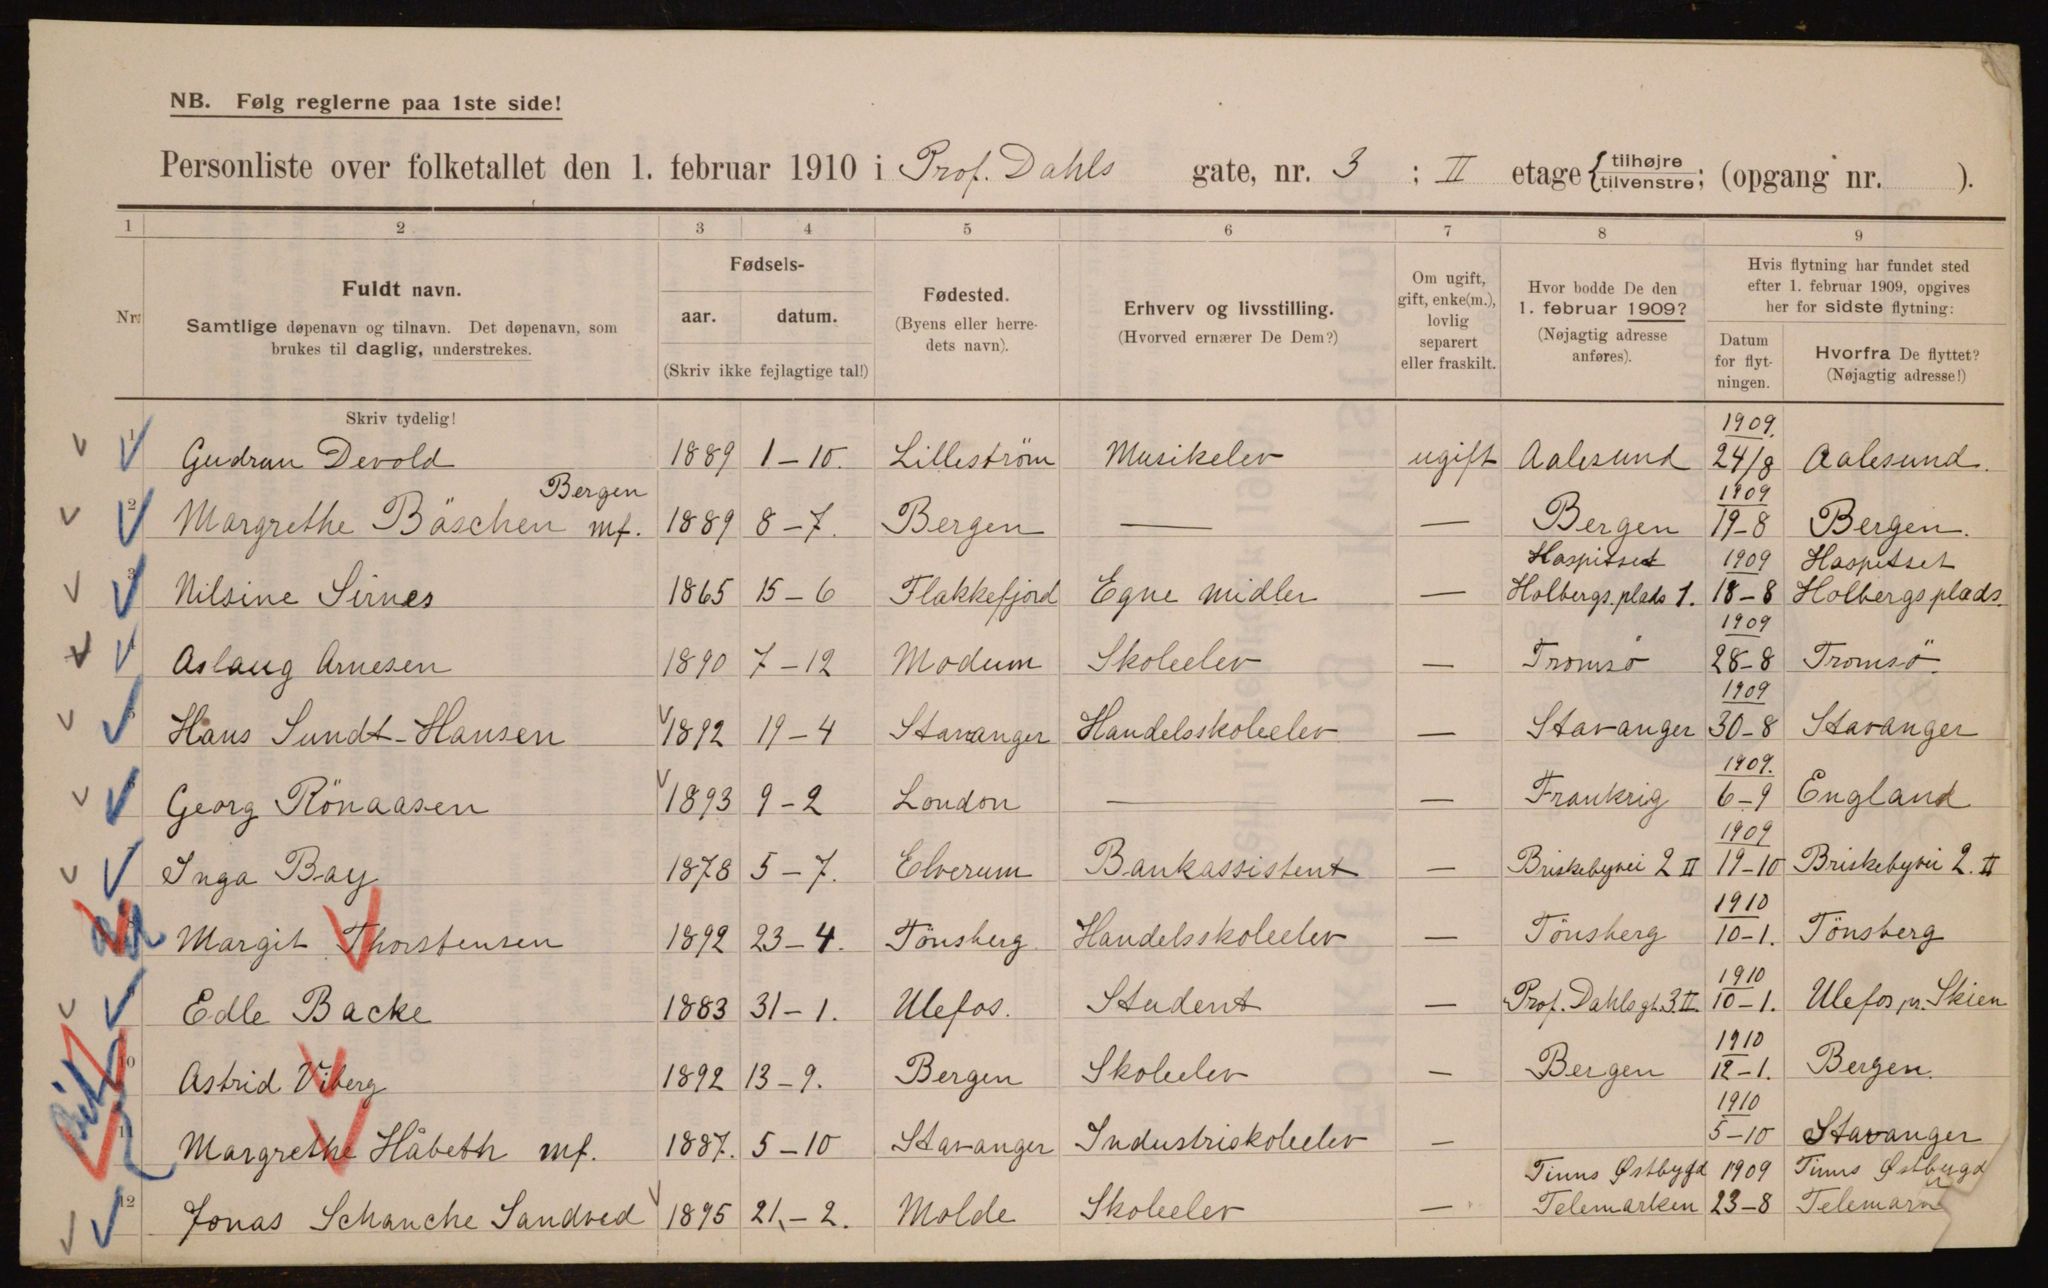 NB. Følg reglerne paa 1ste side!
Personliste over folketallet den 1. februar 1910 i Prof. Dahls gate, nr. 3 ; II etage { tilhøjre / tilvenstre; (opgang nr. ).
1 2 3 4 5 6 7 8 9
Nr. Fuldt navn. Samtlige døpenavn og tilnavn. Det døpenavn, som brukes til daglig, understrekes. Fødsels- aar. datum. (Skriv ikke fejlagtige tal!) Fødested. (Byens eller herredets navn). Erhverv og livsstilling. (Hvorved ernærer De Dem?) Om ugift, gift, enke(m.), lovlig separert eller fraskilt. Hvor bodde De den 1. februar 1909? (Nøjagtig adresse anføres). Hvis flytning har fundet sted efter 1. februar 1909, opgives her for sidste flytning: Datum for flytningen. Hvorfra De flyttet? (Nøjagtig adresse!)
Skriv tydelig!
1 Gudrun Devold 1889 1–10. Lilleström Musikelev ugift Aalesund 1909. 24/8 Aalesund.
2 Margrethe Bäschen Bergen mf. 1889 8–7. Bergen — — Bergen 1909 19–8 Bergen.
3 Nilsine Sirnes 1865 15–6 Flakkefjord Egne midler — Hospitset Holbergs.plads 1. 1909 18–8 Hospitset Holbergsplads.
4 Aslaug Arnesen 1890 7–12 Modum Skoleelev — Tromsö 1909 28–8 Tromsö.
5 Hans Sundt-Hansen 1892 19–4 Stavanger Handelsskoleelev — Stavanger 1909 30–8 Stavanger
Georg Rönaasen 1893 9–2 London — — Frankrig 1909. 6–9 England
7 Inga Bay 1878 5–7. Elverum Bankassistent — Briskebyvei 2 II 1909 19–10 Briskebyvei 2. II
8 Margit Thorstensen 1892 23–4. Tönsberg Handelsskoleelev — Tönsberg 1910 10–1. Tönsberg
Edle Backe 1883 31–1. Ulefos. Student — Prof. Dahlsgt. 3. II. 1910 10–1. Ulefos pr. Skien
10 Astrid Viberg 1892 13–9. Bergen Skoleelev — Bergen 1910 12–1. Bergen.
11 Margrethe Håbeth mf. 1887. 5–10 Stavanger Industriskoleelev — 1910 5–10 Stavanger
12 Jonas Schanche Sandved 1895 21–2. Molde Skoleelev — Tinns Østbygd Telemarken 1909 23–8 Tinns Østbygd Telemarn